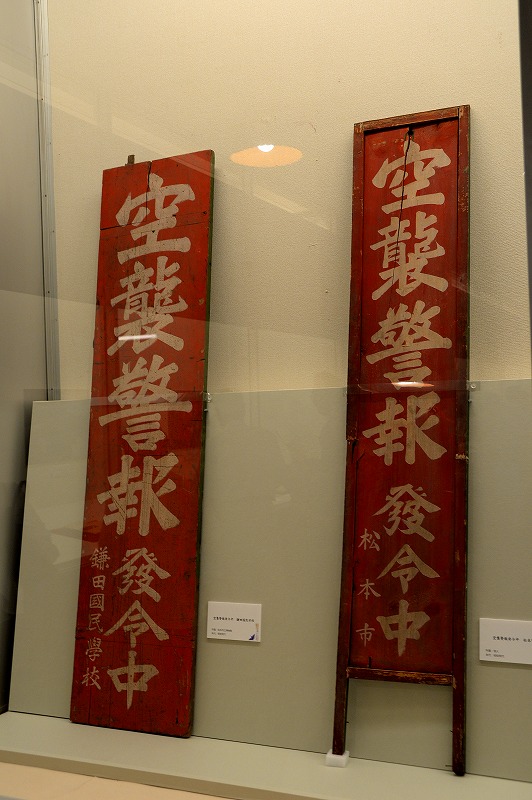 空襲警報發令中
鎌田國民學校
空襲警報發令中
松本市